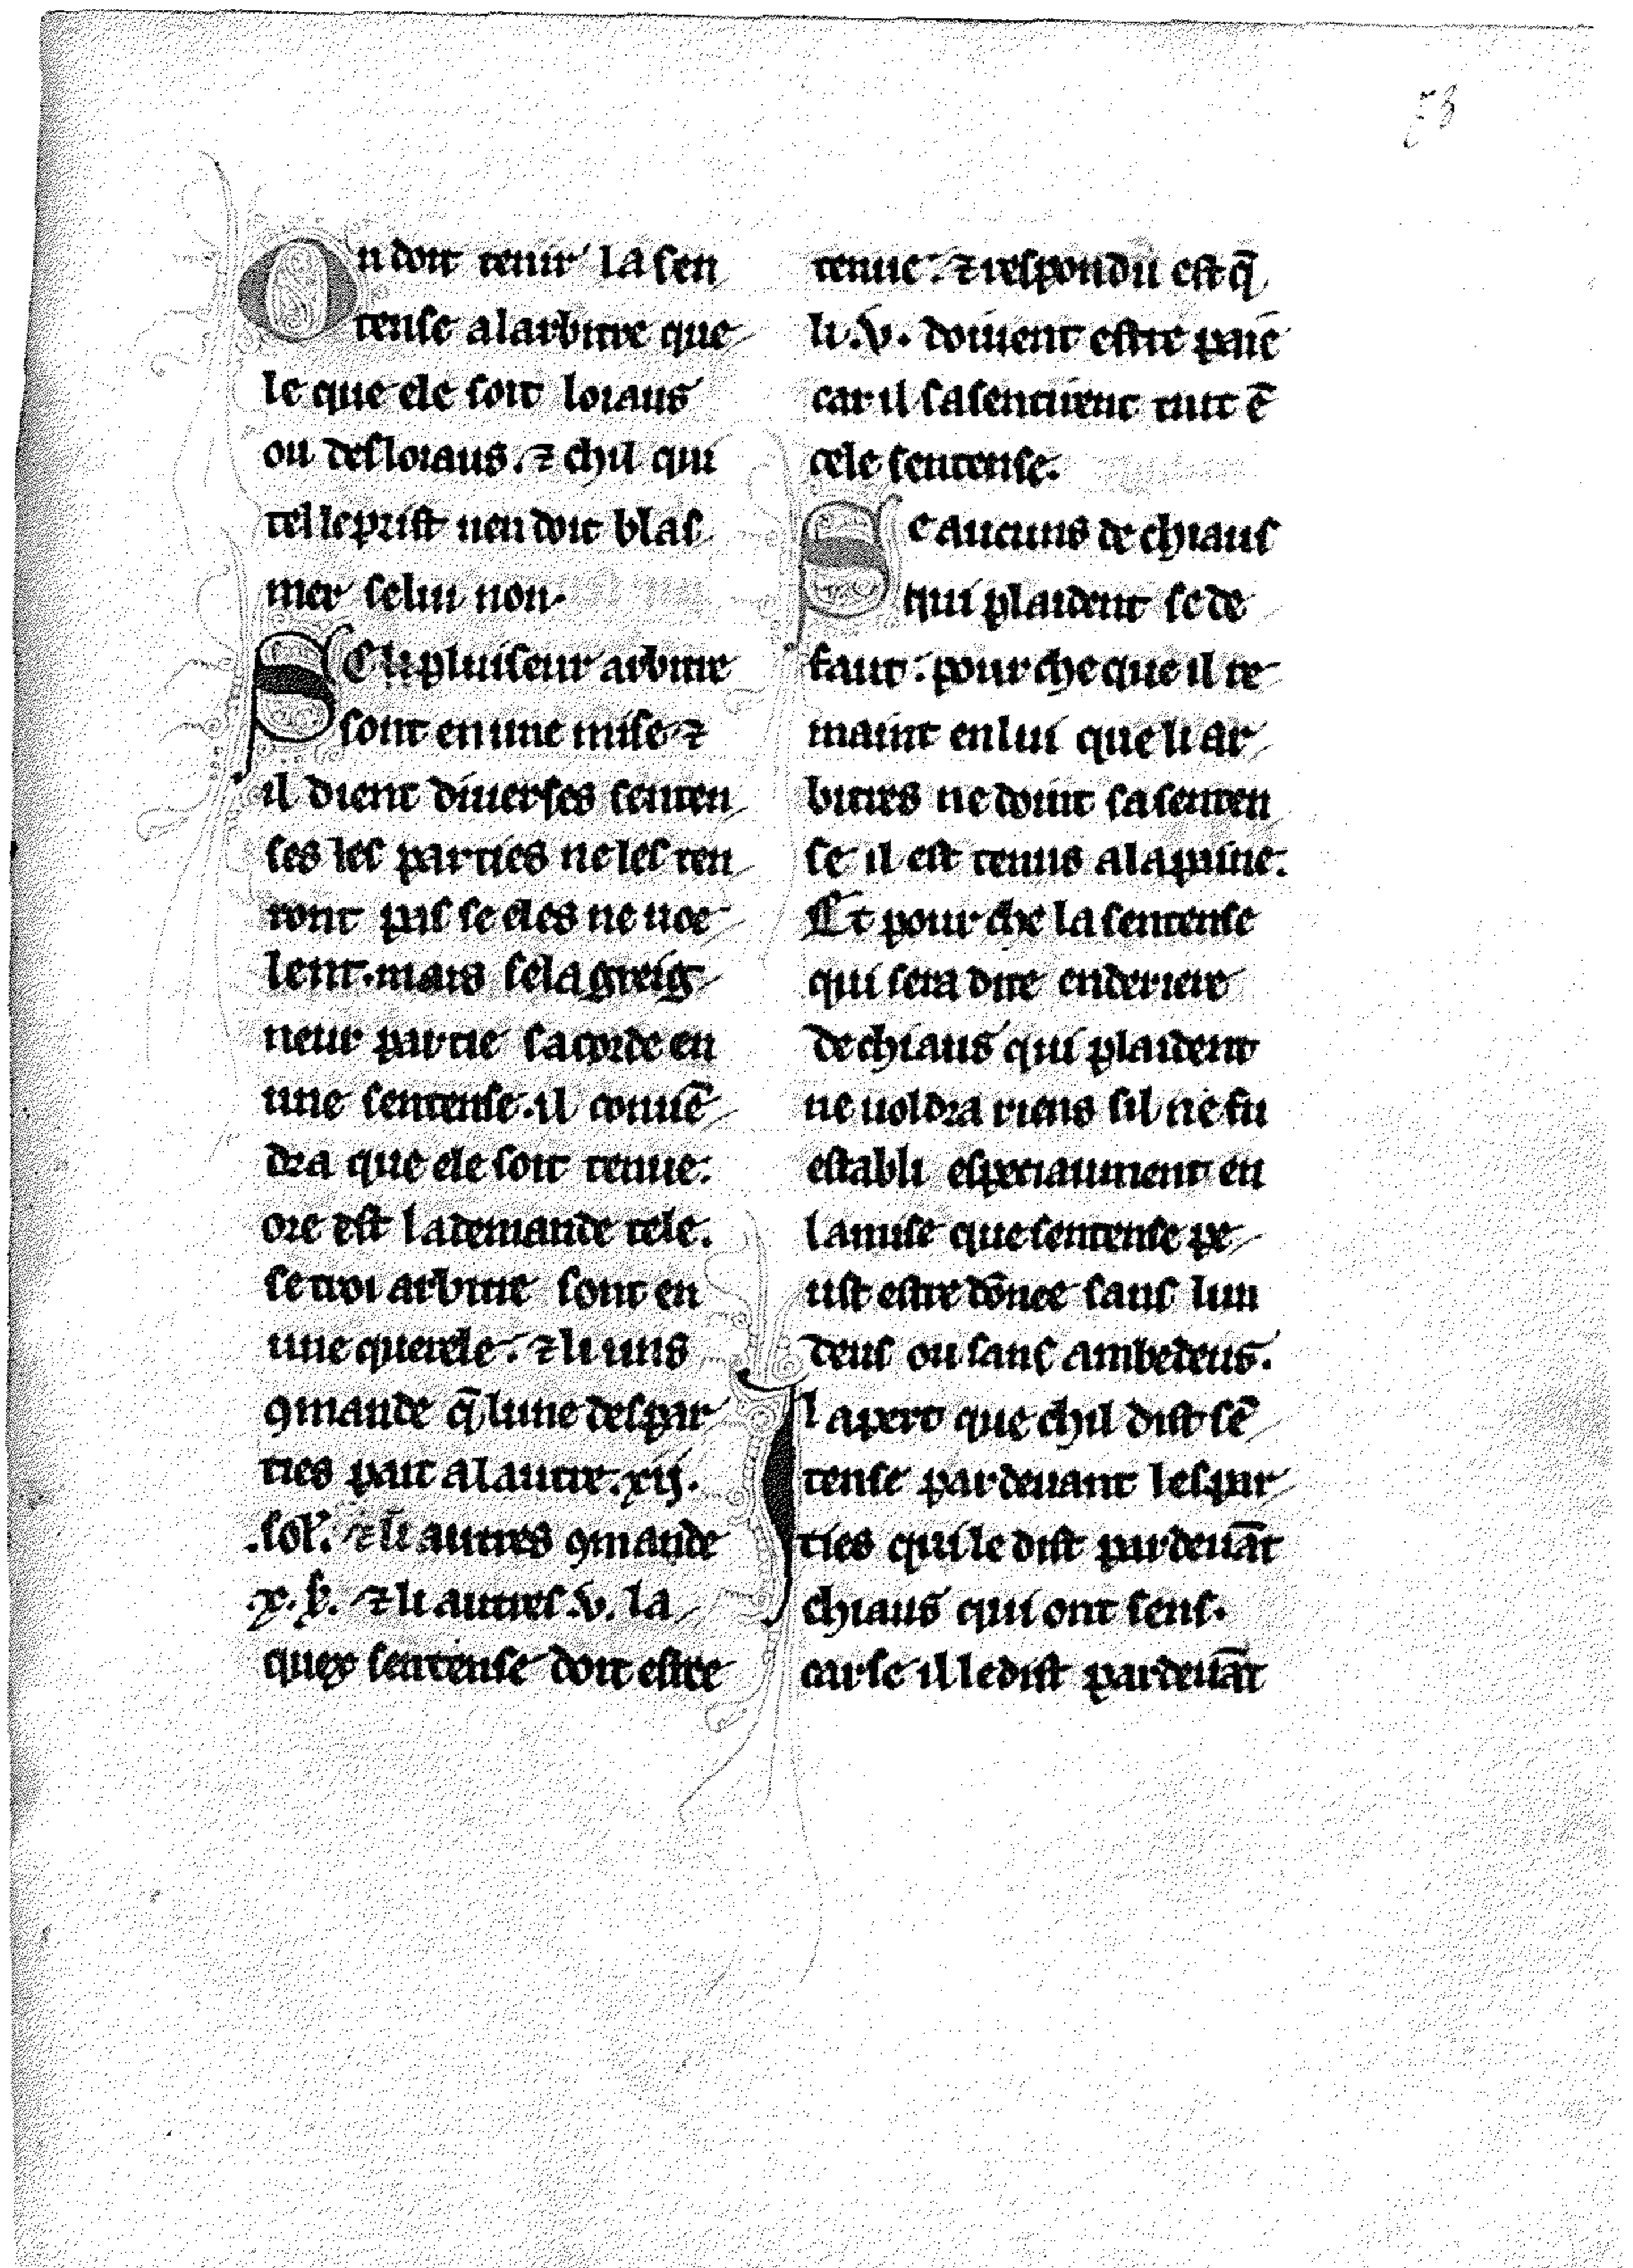 58
On doit tenir la sen
tense alarbitre que
le que ele soit loiaus
ou desloiaus. ⁊ chil qui
tel le prist nen doit blas
mer se lui non.
SE li pluiseur arbitre
sont en une mise ⁊
il dient diuerses senten
ses les parties ne les ten
ront pas se eles ne uoe
lent. mais se la greig
neur partie sacorde en
une sentense. il conuē
dra que ele soit tenue.
ore est la demande tele.
se troi arbitre sont en
une querele. ⁊ li uns
ꝯmande q̄ lune des par
ties pait a lautre .xij.
.sol'. ⁊ li autres ꝯmande
.x. s̄. ⁊ li autres .v. la
quex sentense doit estre
tenue. ⁊ respondu est q̄
li .v. doiuent estre paié
car il sasentirent tuit ē
cele sentense.
Se aucuns de chiaus
qui plaident se de
faut. pour che que il re
maint en lui que li ar
bitres ne doint sa senten
se il est tenus a la paine.
Et pour che la sentense
qui sera dite enderiere
de chiaus qui plaident
ne uoldra riens sil ne fu
establi especiaument en
la mise que sentense pe
ust estre dōnee sans lun
deus ou sans ambedeus.
Il apert que chil dist sē
tense par deuant les par
ties qui le dist par deuāt
chiaus qui ont sens.
car se il le dist par deuāt